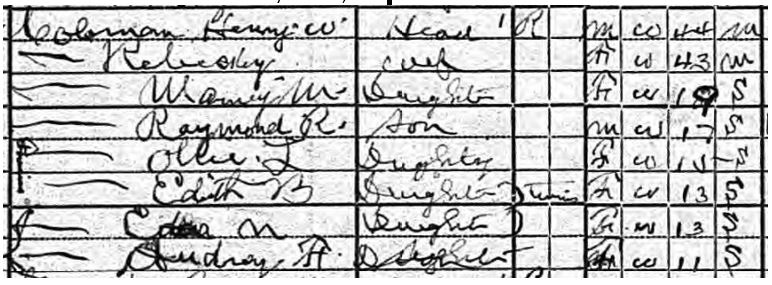 Coloman Henry W. Head 1 R M W 44 M
Wife F W 43 M
M. Daughter F W 19 S
Raymond R. Son M W 17 S
Ollie L Daughter F W 15 S
Edith B Daughter } Twins F W 13 S
Edna M Daughter } F W 13 S
Audrey F. Daughter F W 11 S